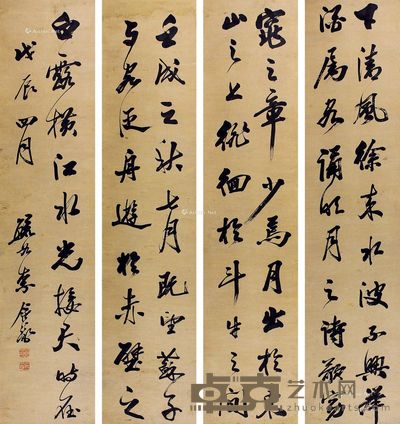 下清風徐来水波不興舉
酒属客誦明月之詩歌窈
窕之章少焉月出於東
山之上徘徊於斗牛之間
壬戌之秋七月既望蘇子
与客泛舟遊於赤壁之
白露横江水光接天時在
戊辰四月